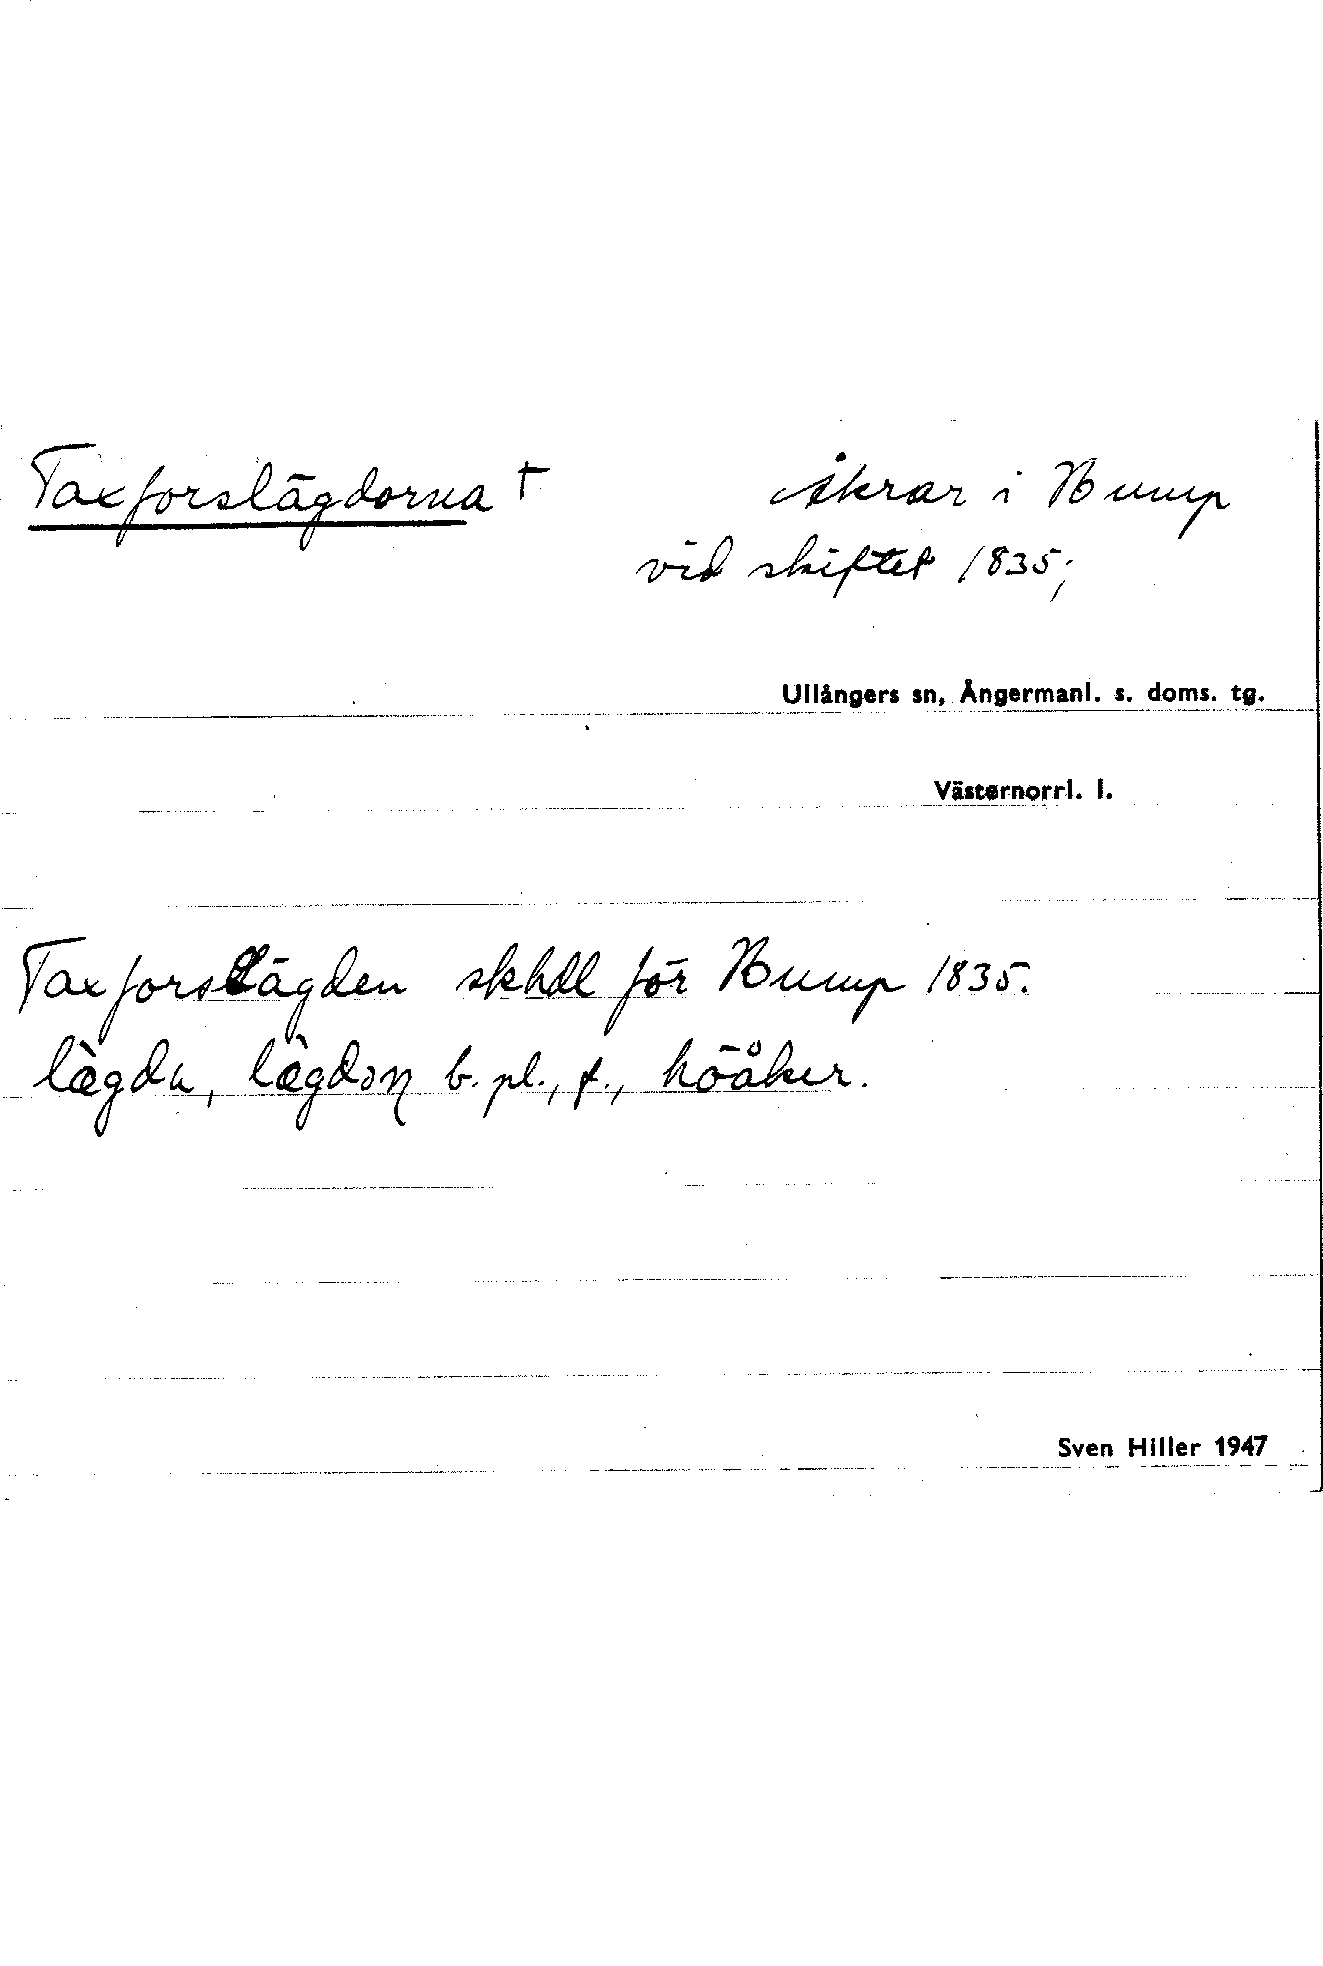 Taxforslägdorna † Åkrar i Bump
vid skiftet 1835;
Ullångers sn, Ångermanl. s. doms. tg.
Västernorrl. l.
Taxforslägden skhdl för Bump 1835.
lägda, b. pl., f., höåker.
Sven Hiller 1947